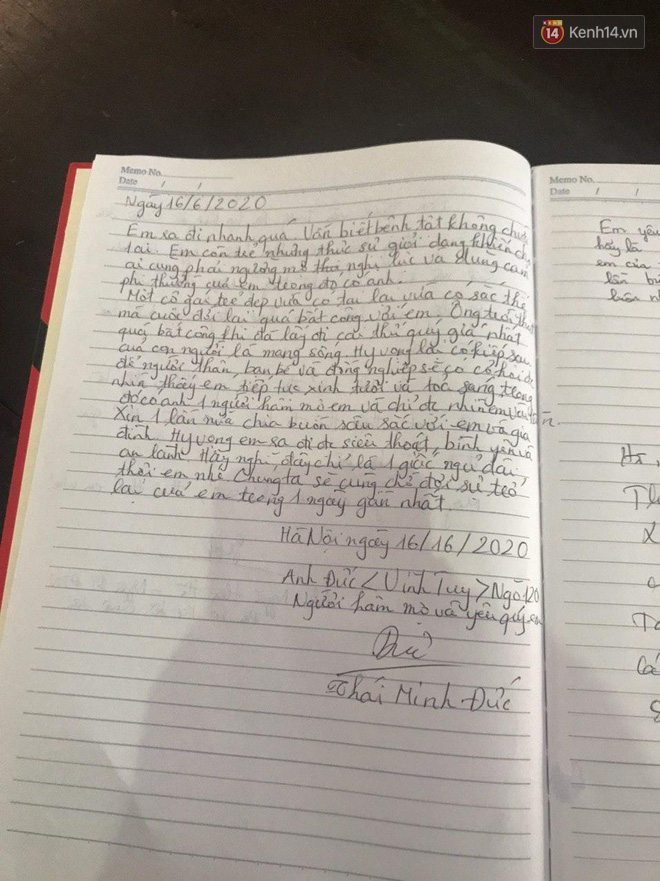 14 Kenh14.vn
Memo No.
Date / /
Ngày 16/6/2020
Em ra đi nhanh quá. Vẫn biết bệnh tật không chừa
lai. Em còn trẻ nhưng thực sự giỏi dang khiến cho
ai cũng phải ngưỡng mộ thời, nghị lực và dũng cảm
phi thường của em trong đó có anh.
Một cô gái trẻ đẹp vừa có tài lại vừa có sắc thế
mà cuộc đời lại quá bất công với em. Ông trời thật
quá bất công khi đã lấy đi cái thứ quý giá nhất
của con người là mạng sống. Hy vọng lại có kiếp sau
để người thân, bạn bè và đồng nghiệp sẽ có cơ hội dc
nhìn thấy em tiếp tục xinh tươi và toả sáng, trong
đó có anh 1 người hâm mộ em và chỉ dc nhìn em và
Xin 1 lần nữa chia buồn sâu sắc với em và gia
đình. Hy vọng em ra đi dc siêu thoát, bình yên và
an lành. Hãy nghĩ, đây chỉ là 1 giấc ngủ dài
thôi em nhé. Chúng ta sẽ cùng chờ đợi sự trở
lại của em trong 1 ngày gần nhất.
Hà Nội ngày 16/16/2020
Anh Đức < Vĩnh Tuy > Ngõ 120
Người hâm mộ và yêu quý em
Đức
Thái Minh Đức
Memo No.
Date / /
Em yêu
hãy là
em của
lần